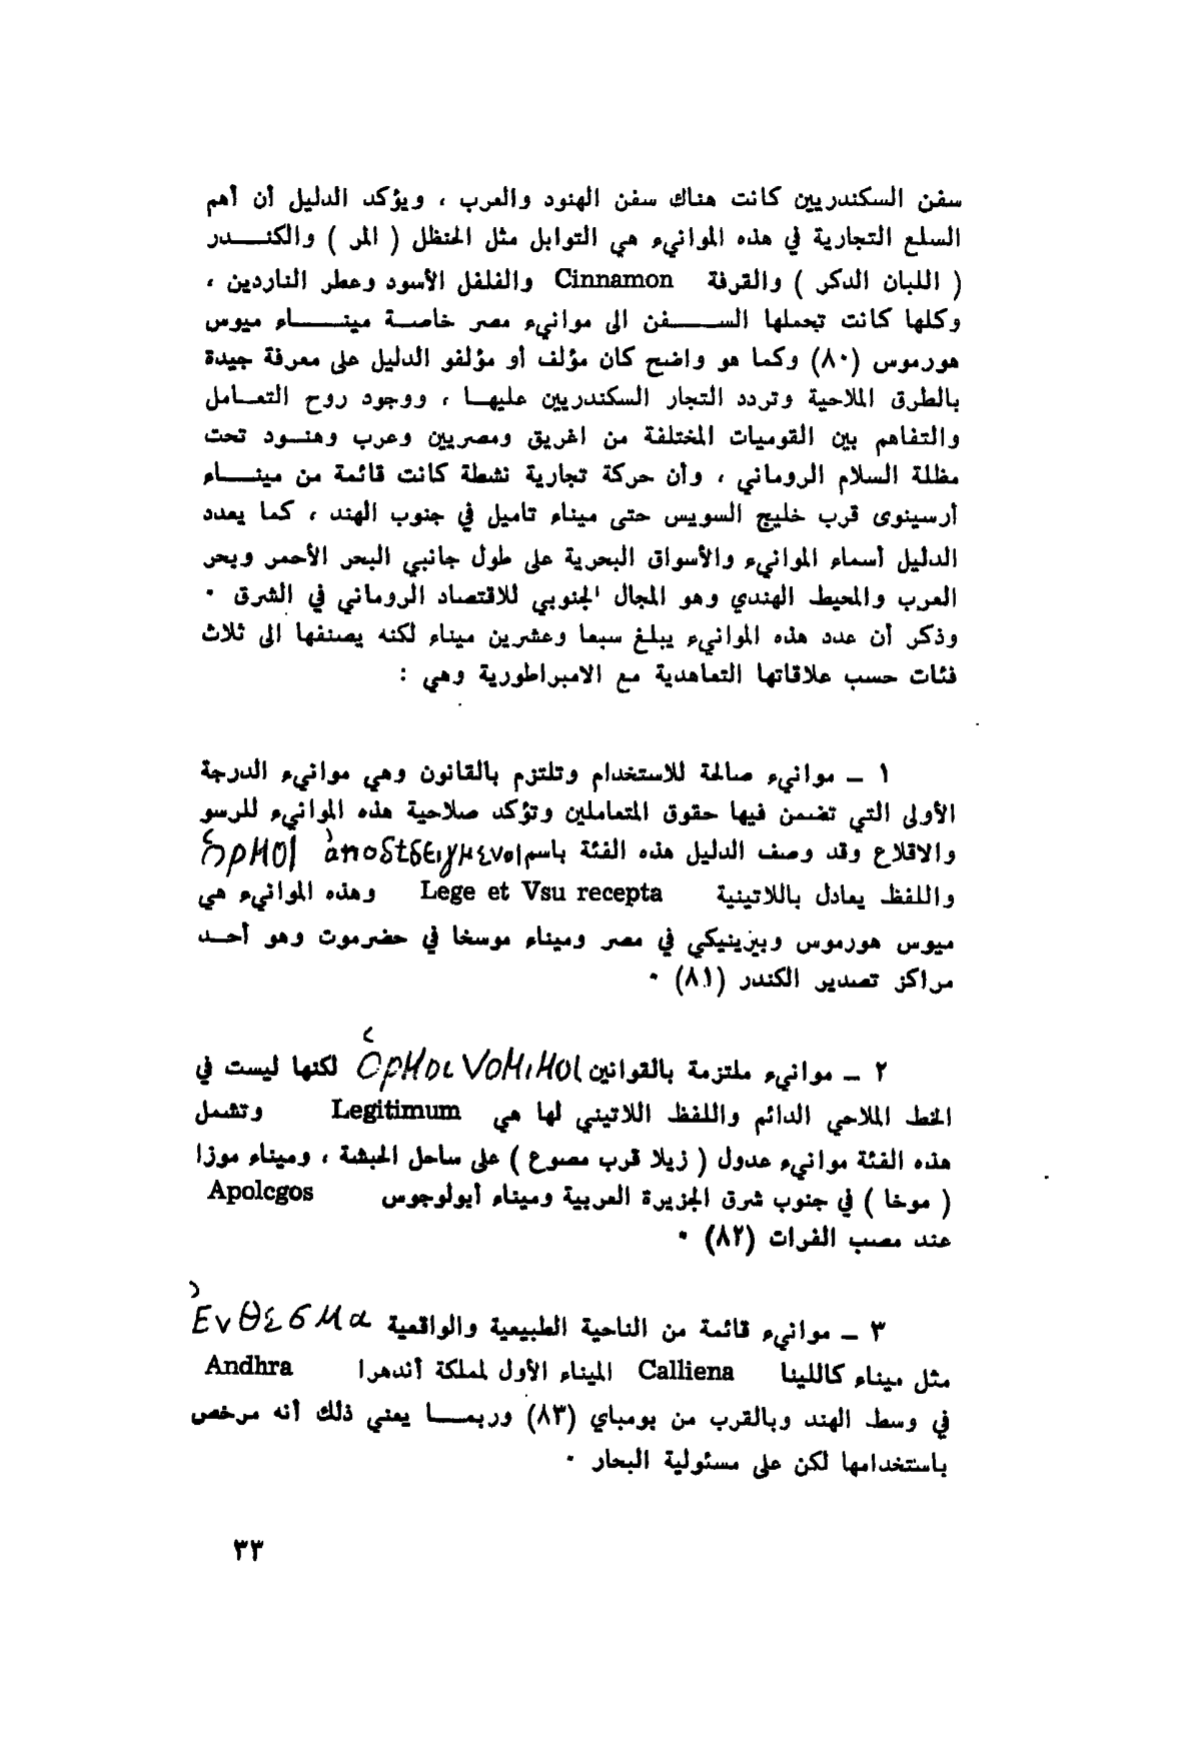 سفن السكندريين كانت هناك سفن الهنود والعرب ، ويؤكد الدليل أن أهم
السلع التجارية في هذه الموانيء هي التوابل مثل الحنظل ( المر ) والكنـــدر
( اللبان الدكر ) والقرفة Cinnamon والفلفل الأسود وعطر الناردين ،
وكلها كانت تحملها الســـفن الى موانيء مصر خاصــة مينـــاء ميوس
هورموس (٨٠) وكما هو واضح كان مؤلف أو مؤلفو الدليل على معرفة جيدة
بالطرق الملاحية وتردد التجار السكندريين عليهــا ، ووجود روح التعــامل
والتفاهم بين القوميات المختلفة من اغريق ومصريين وعرب وهنــود تحت
مظلة السلام الروماني ، وأن حركة تجارية نشطة كانت قائمة من مينـــاء
أرسينوى قرب خليج السويس حتى ميناء تاميل في جنوب الهند ، كما يعدد
الدليل أسماء الموانيء والأسواق البحرية على طول جانبي البحر الأحمر وبحر
العرب والمحيط الهندي وهو المجال الجنوبي للاقتصاد الروماني في الشرق ٠
وذكر أن عدد هذه الموانيء يبلغ سبعا وعشرين ميناء لكنه يصنفها الى ثلاث
فئات حسب علاقاتها التعاهدية مع الامبراطورية وهي :
١ ــ موانيء صالحة للاستخدام وتلتزم بالقانون وهي موانيء الدرجة
الأولى التي تضمن فيها حقوق المتعاملين وتؤكد صلاحية هذه الموانيء للرسو
والاقلاع وقد وصف الدليل هذه الفئة باسم ὅρμοι ἀποδεδειγμένοι
واللفظ يعادل باللاتينية Lege et Vsu recepta وهذه الموانيء هي
ميوس هورموس وبيزينيكي في مصر وميناء موسخا في حضرموت وهو أحــد
مراكز تصدير الكندر (٨١) ٠
٢ ــ موانيء ملتزمة بالقوانين Ὅρμοι νομιμοι لكنها ليست في
الخط الملاحي الدائم واللفظ اللاتيني لها هي Legitimum وتشمل
هذه الفئة موانيء عدول ( زيلا قرب مصوع ) على ساحل الحبشة ، وميناء موزا
( موخا ) في جنوب شرق الجزيرة العربية وميناء أبولوجوس Apolcgos
عند مصب الفرات (٨٢) ٠
٣ ــ موانيء قائمة من الناحية الطبيعية والواقعية Ἐνθεσμα
مثل ميناء كاللينا Calliena الميناء الأول لمملكة أندهرا Andhra
في وسط الهند وبالقرب من بومباي (٨٣) وربمـــا يعني ذلك أنه مرخص
باستخدامها لكن على مسئولية البحار ٠
٣٣